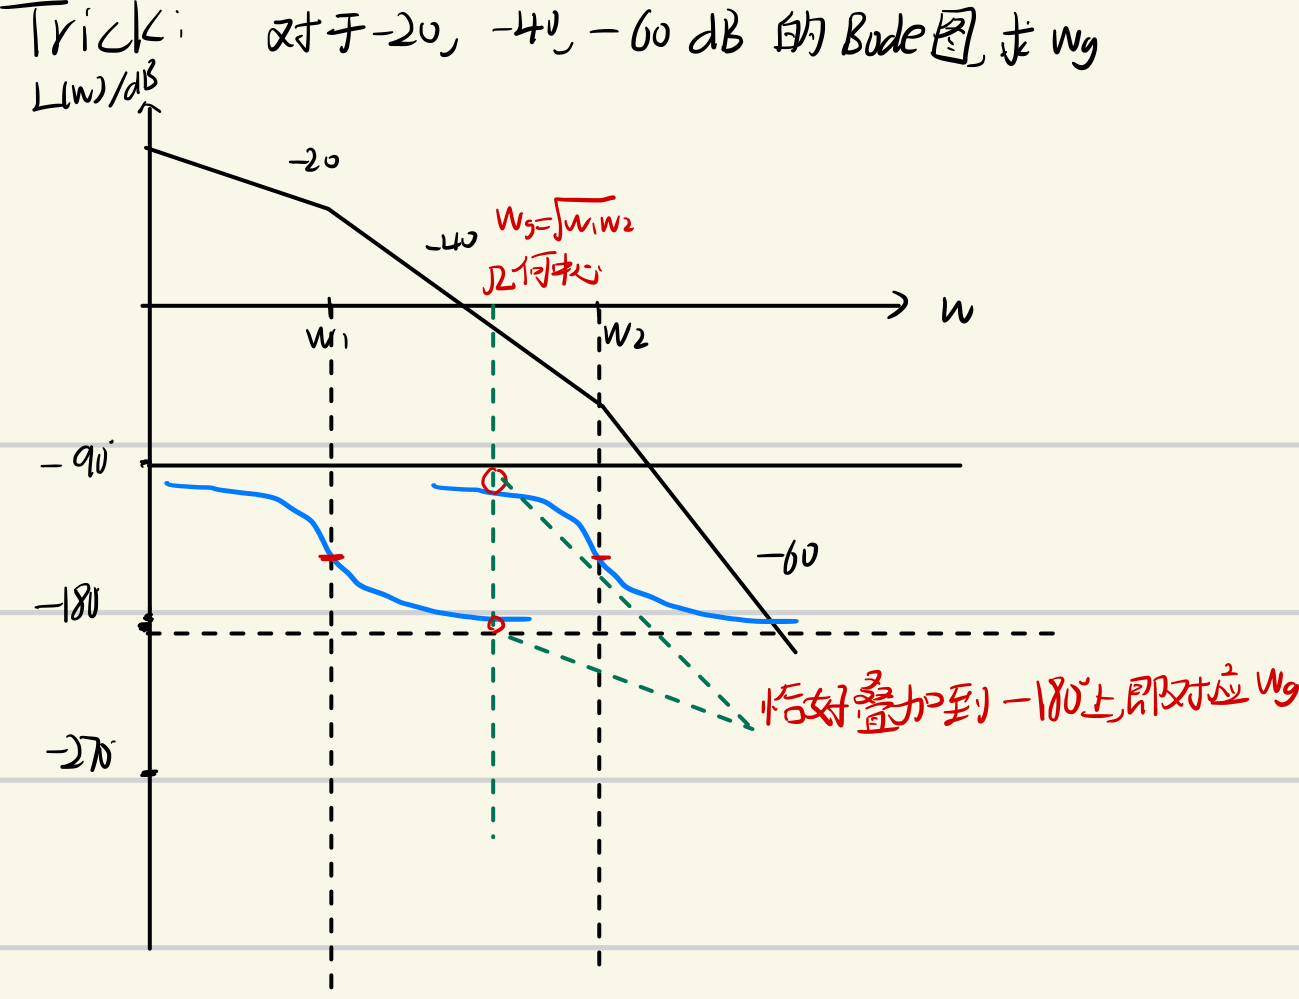 Trick: 对于-20, -40, -60 dB 的 Bode图, 求 wg
L(w)/dB
-20
-40
wg=√w1w2
几何中心
w
w1
w2
-90°
-60
-180°
恰好叠加到-180°上,即对应 wg
-270°